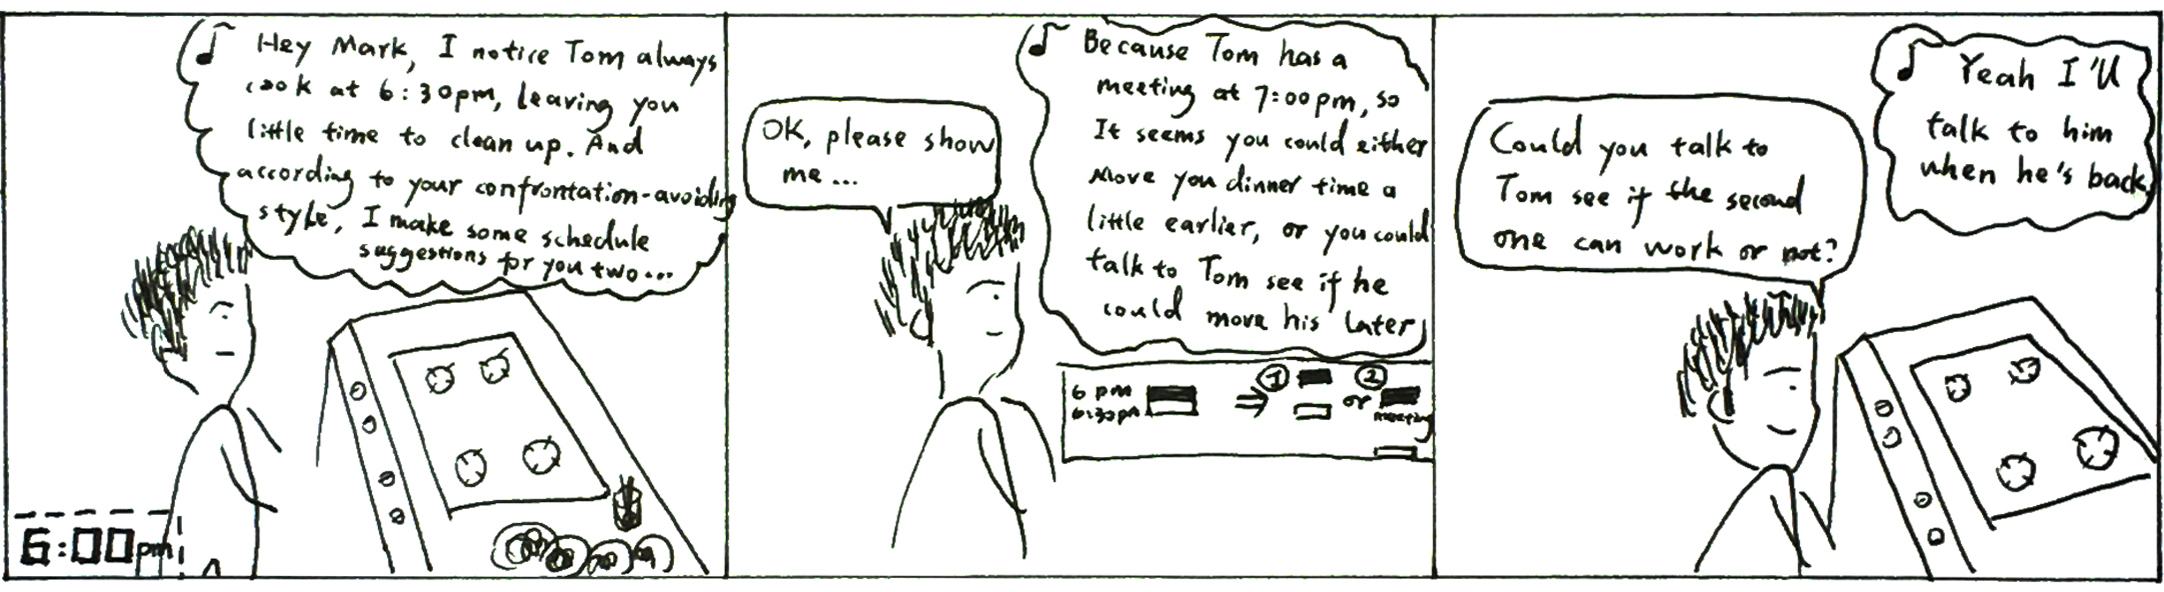 Hey Mark, I notice Tom always
cook at 6:30pm, leaving you
little time to clean up. And
according to your confrontation-avoiding
style, I make some schedule
suggestions for you two...
6:00pm
OK, please show
me...
Because Tom has a
meeting at 7:00pm, so
It seems you could either
Move you dinner time a
little earlier, or you could
talk to Tom see if he
could move his later
6 pm
6:30pm
⇒ ① or ②
meeting
Could you talk to
Tom see if the second
one can work or not?
Yeah I'll
talk to him
when he's back